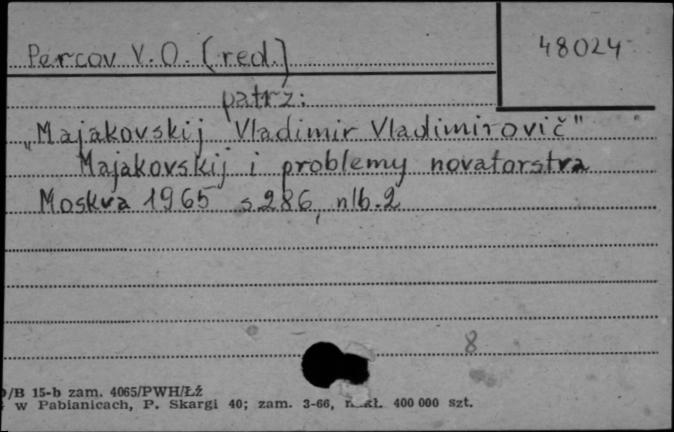 Percov V. O. (red.)
48024
patrz:
„Majakovskij Vladimir Vladimirovič"
Majakovskij i problemy novatorstva
Moskva 1965 s. 286, nlb. 2
8
/B 15-b zam. 4065/PWH/Łź
w Pabianicach, P. Skargi 40; zam. 3-66, 400 000 szt.